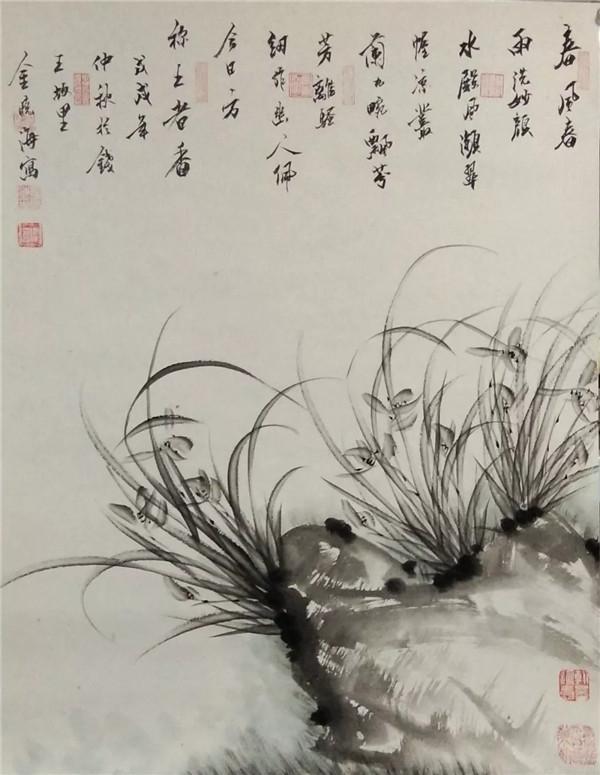 春風春
雨洗妙顔
水殿風翠
幄凉叢
蘭九畹飄芬
芳離騷
細詠幽人佩
今日方
称王者香
戊戌年
仲秋於錢
王里
金海寫